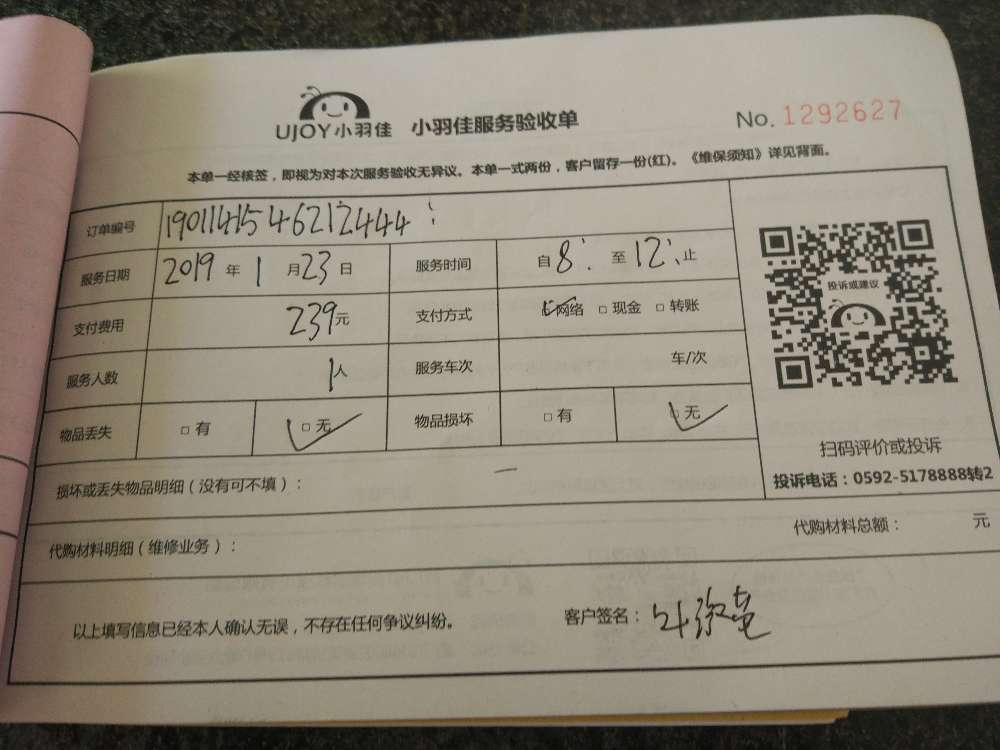 UJOY小羽佳 小羽佳服务验收单 No. 1292627
本单一经核签，即视为对本次服务验收无异议。本单一式两份，客户留存一份(红)。《维保须知》详见背面。
订单编号 1901141546212444
服务日期 2019年1月23日 服务时间 自8:至12:止
支付费用 239元 支付方式 网络 □ 现金 □ 转账
服务人数 1人 服务车次 车/次
物品丢失 □ 有 □ 无 物品损坏 □ 有 □ 无
投诉或建议
扫码评价或投诉
投诉电话：0592-5178888转2
损坏或丢失物品明细（没有可不填）： —
代购材料明细（维修业务）： 代购材料总额： 元
以上填写信息已经本人确认无误，不存在任何争议纠纷。 客户签名：